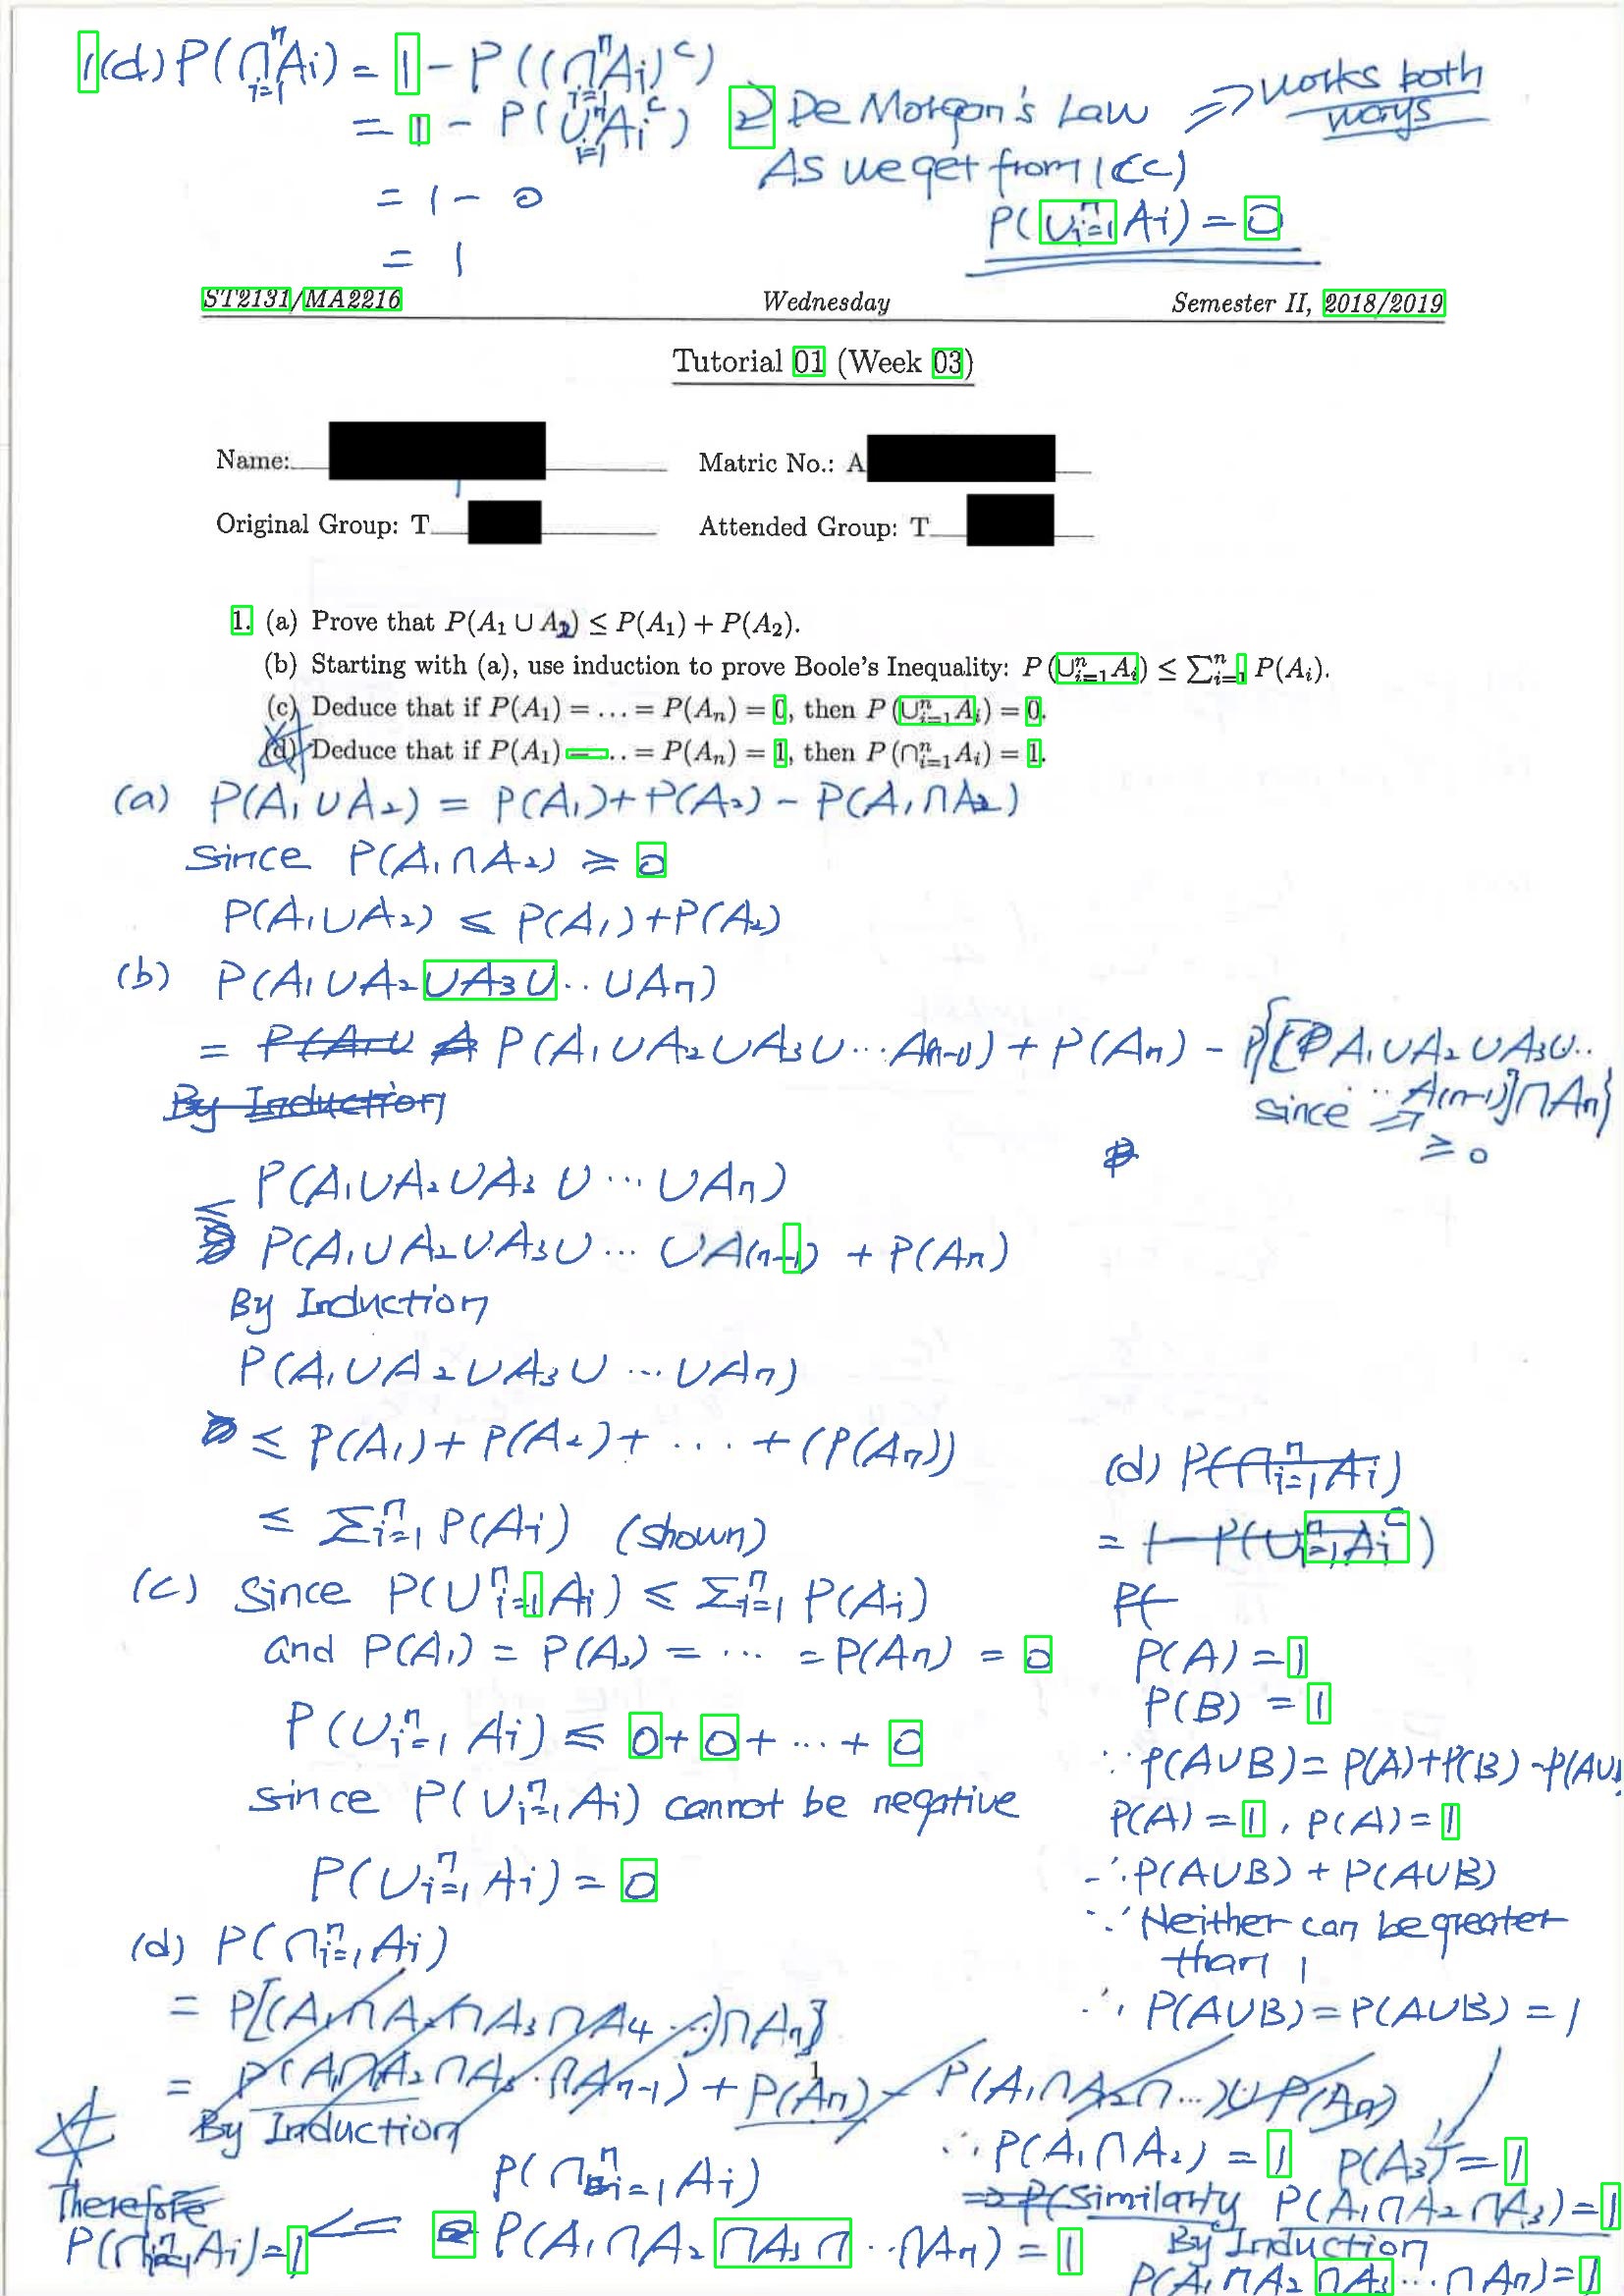 1(d) P(∩ⁿᵢ₌₁Aᵢ) = 1 - P((∩ⁿᵢ₌₁Aᵢ)ᶜ)
= 1 - P(∪ⁿᵢ₌₁Aᵢᶜ) De Morgan's Law => works both ways
As we get from 1(c)
= 1 - 0
P(∪ⁿᵢ₌₁ Aᵢ) = 0
= 1
ST2131/MA2216 Wednesday Semester II, 2018/2019
Tutorial 01 (Week 03)
Name: Matric No.: A
Original Group: T Attended Group: T
1. (a) Prove that P(A₁ ∪ A₂) ≤ P(A₁) + P(A₂).
(b) Starting with (a), use induction to prove Boole's Inequality: P (∪ⁿᵢ₌₁Aᵢ) ≤ ∑ⁿᵢ₌₁ P(Aᵢ).
(c) Deduce that if P(A₁) = ... = P(Aₙ) = 0, then P (∪ⁿᵢ₌₁Aᵢ) = 0.
(d) Deduce that if P(A₁) = ... = P(Aₙ) = 1, then P (∩ⁿᵢ₌₁Aᵢ) = 1.
(a) P(A₁ ∪ A₂) = P(A₁) + P(A₂) - P(A₁ ∩ A₂)
Since P(A₁ ∩ A₂) ≥ 0
P(A₁ ∪ A₂) ≤ P(A₁) + P(A₂)
(b) P(A₁ ∪ A₂ ∪ A₃ ∪ .. ∪ Aₙ)
= P(A₁ ∪ A₂ ∪ A₃ ∪ ... A₍ₙ₋₁₎) + P(Aₙ) - P{[A₁ ∪ A₂ ∪ A₃ ∪ ..
.. A₍ₙ₋₁₎] ∩ Aₙ}
By Induction
since => ≥ 0
P(A₁ ∪ A₂ ∪ A₃ ∪ ... ∪ Aₙ)
≤ P(A₁ ∪ A₂ ∪ A₃ ∪ ... ∪ A₍ₙ₋₁₎) + P(Aₙ)
By Induction
P(A₁ ∪ A₂ ∪ A₃ ∪ ... ∪ Aₙ)
≤ P(A₁) + P(A₂) + ... + (P(Aₙ))
≤ ∑ⁿᵢ₌₁ P(Aᵢ) (shown)
(c) Since P(∪ⁿᵢ₌₁ Aᵢ) ≤ ∑ⁿᵢ₌₁ P(Aᵢ)
and P(A₁) = P(A₂) = ... = P(Aₙ) = 0
P(∪ⁿᵢ₌₁ Aᵢ) ≤ 0 + 0 + ... + 0
since P(∪ⁿᵢ₌₁ Aᵢ) cannot be negative
P(∪ⁿᵢ₌₁ Aᵢ) = 0
(d) P(∩ⁿᵢ₌₁ Aᵢ)
= P[(A₁ ∩ A₂ ∩ A₃ ∩ A₄ ...) ∩ Aₙ]
= P(A₁ ∩ A₂ ∩ A₃ . ∩ Aₙ₋₁) + P(Aₙ) - P(A₁ ∩ A₂ ∩ ...) ∪ P(Aₙ)
By Induction
(d) P(∩ⁿᵢ₌₁ Aᵢ)
= 1 - P(∪ⁿᵢ₌₁ Aᵢᶜ)
P(
P(A) = 1
P(B) = 1
∵ P(A∪B) = P(A) + P(B) - P(A∪
P(A) = 1, P(A) = 1
∴ P(A∪B) + P(A∪B)
∵ Neither can be greater
than 1
∴ P(A∪B) = P(A∪B) = 1
∴ P(A₁ ∩ A₂) = 1 P(A₃) = 1
=> P( Similarly P(A₁ ∩ A₂ ∩ A₃) = 1
By Induction
P(A₁ ∩ A₂ ∩ A₃ ... ∩ Aₙ) = 1
P(∩ⁿᵢ₌₁ Aᵢ)
P(A₁ ∩ A₂ ∩ A₃ ∩ .. ∩ Aₙ) = 1
Therefore
P(∩ⁿᵢ₌₁ Aᵢ) = 1 <=